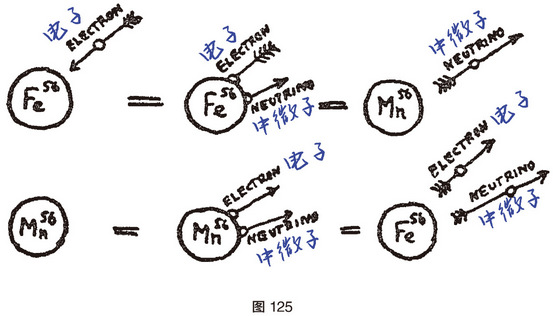 电子
ELECTRON
Fe⁵⁶
=
电子
ELECTRON
Fe⁵⁶
NEUTRINO
中微子
=
Mn⁵⁶
中微子
NEUTRINO
Mn⁵⁶
=
ELECTRON 电子
Mn⁵⁶
NEUTRINO
中微子
=
Fe⁵⁶
ELECTRON 电子
NEUTRINO
中微子
图 125